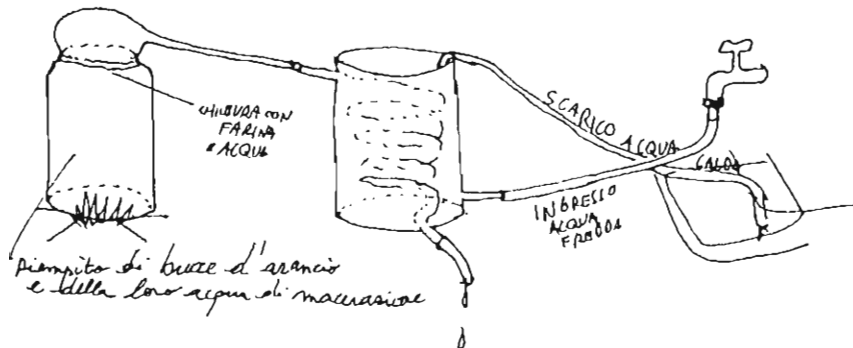 CHIUSURA CON
FARINA
e ACQUA
SCARICO ACQUA CALDA
INGRESSO
ACQUA
FREDDA
Riempito di bucce d'arancio
e della loro acqua di macerazione